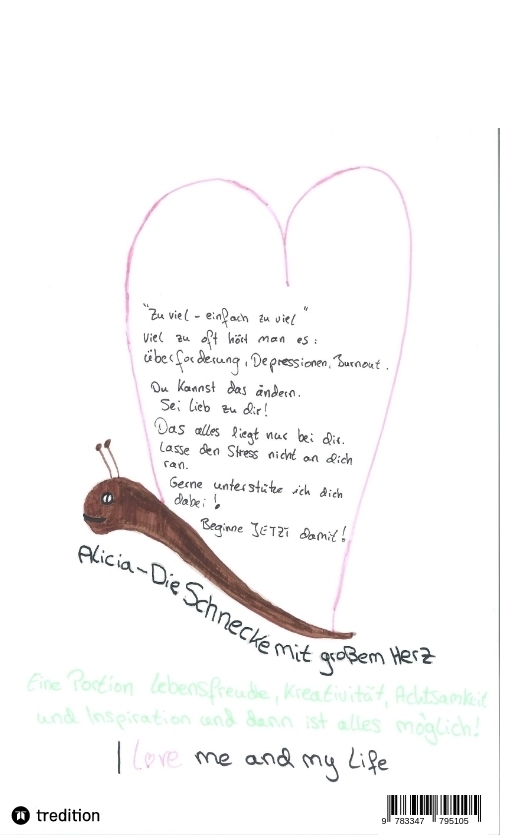 "Zu viel - einfach zu viel"
Viel zu oft hört man es:
Überforderung, Depressionen, Burnout.
Du kannst das ändern.
Sei lieb zu dir!
Das alles liegt nur bei dir.
Lasse den Stress nicht an dich
ran.
Gerne unterstütze ich dich
dabei!
Beginne JETZT damit!
Alicia-Die Schnecke mit großem Herz
Eine Portion Lebensfreude, Kreativität, Achtsamkeit
und Inspiration und dann ist alles möglich!
I love me and my Life
tredition
9 783347 795105